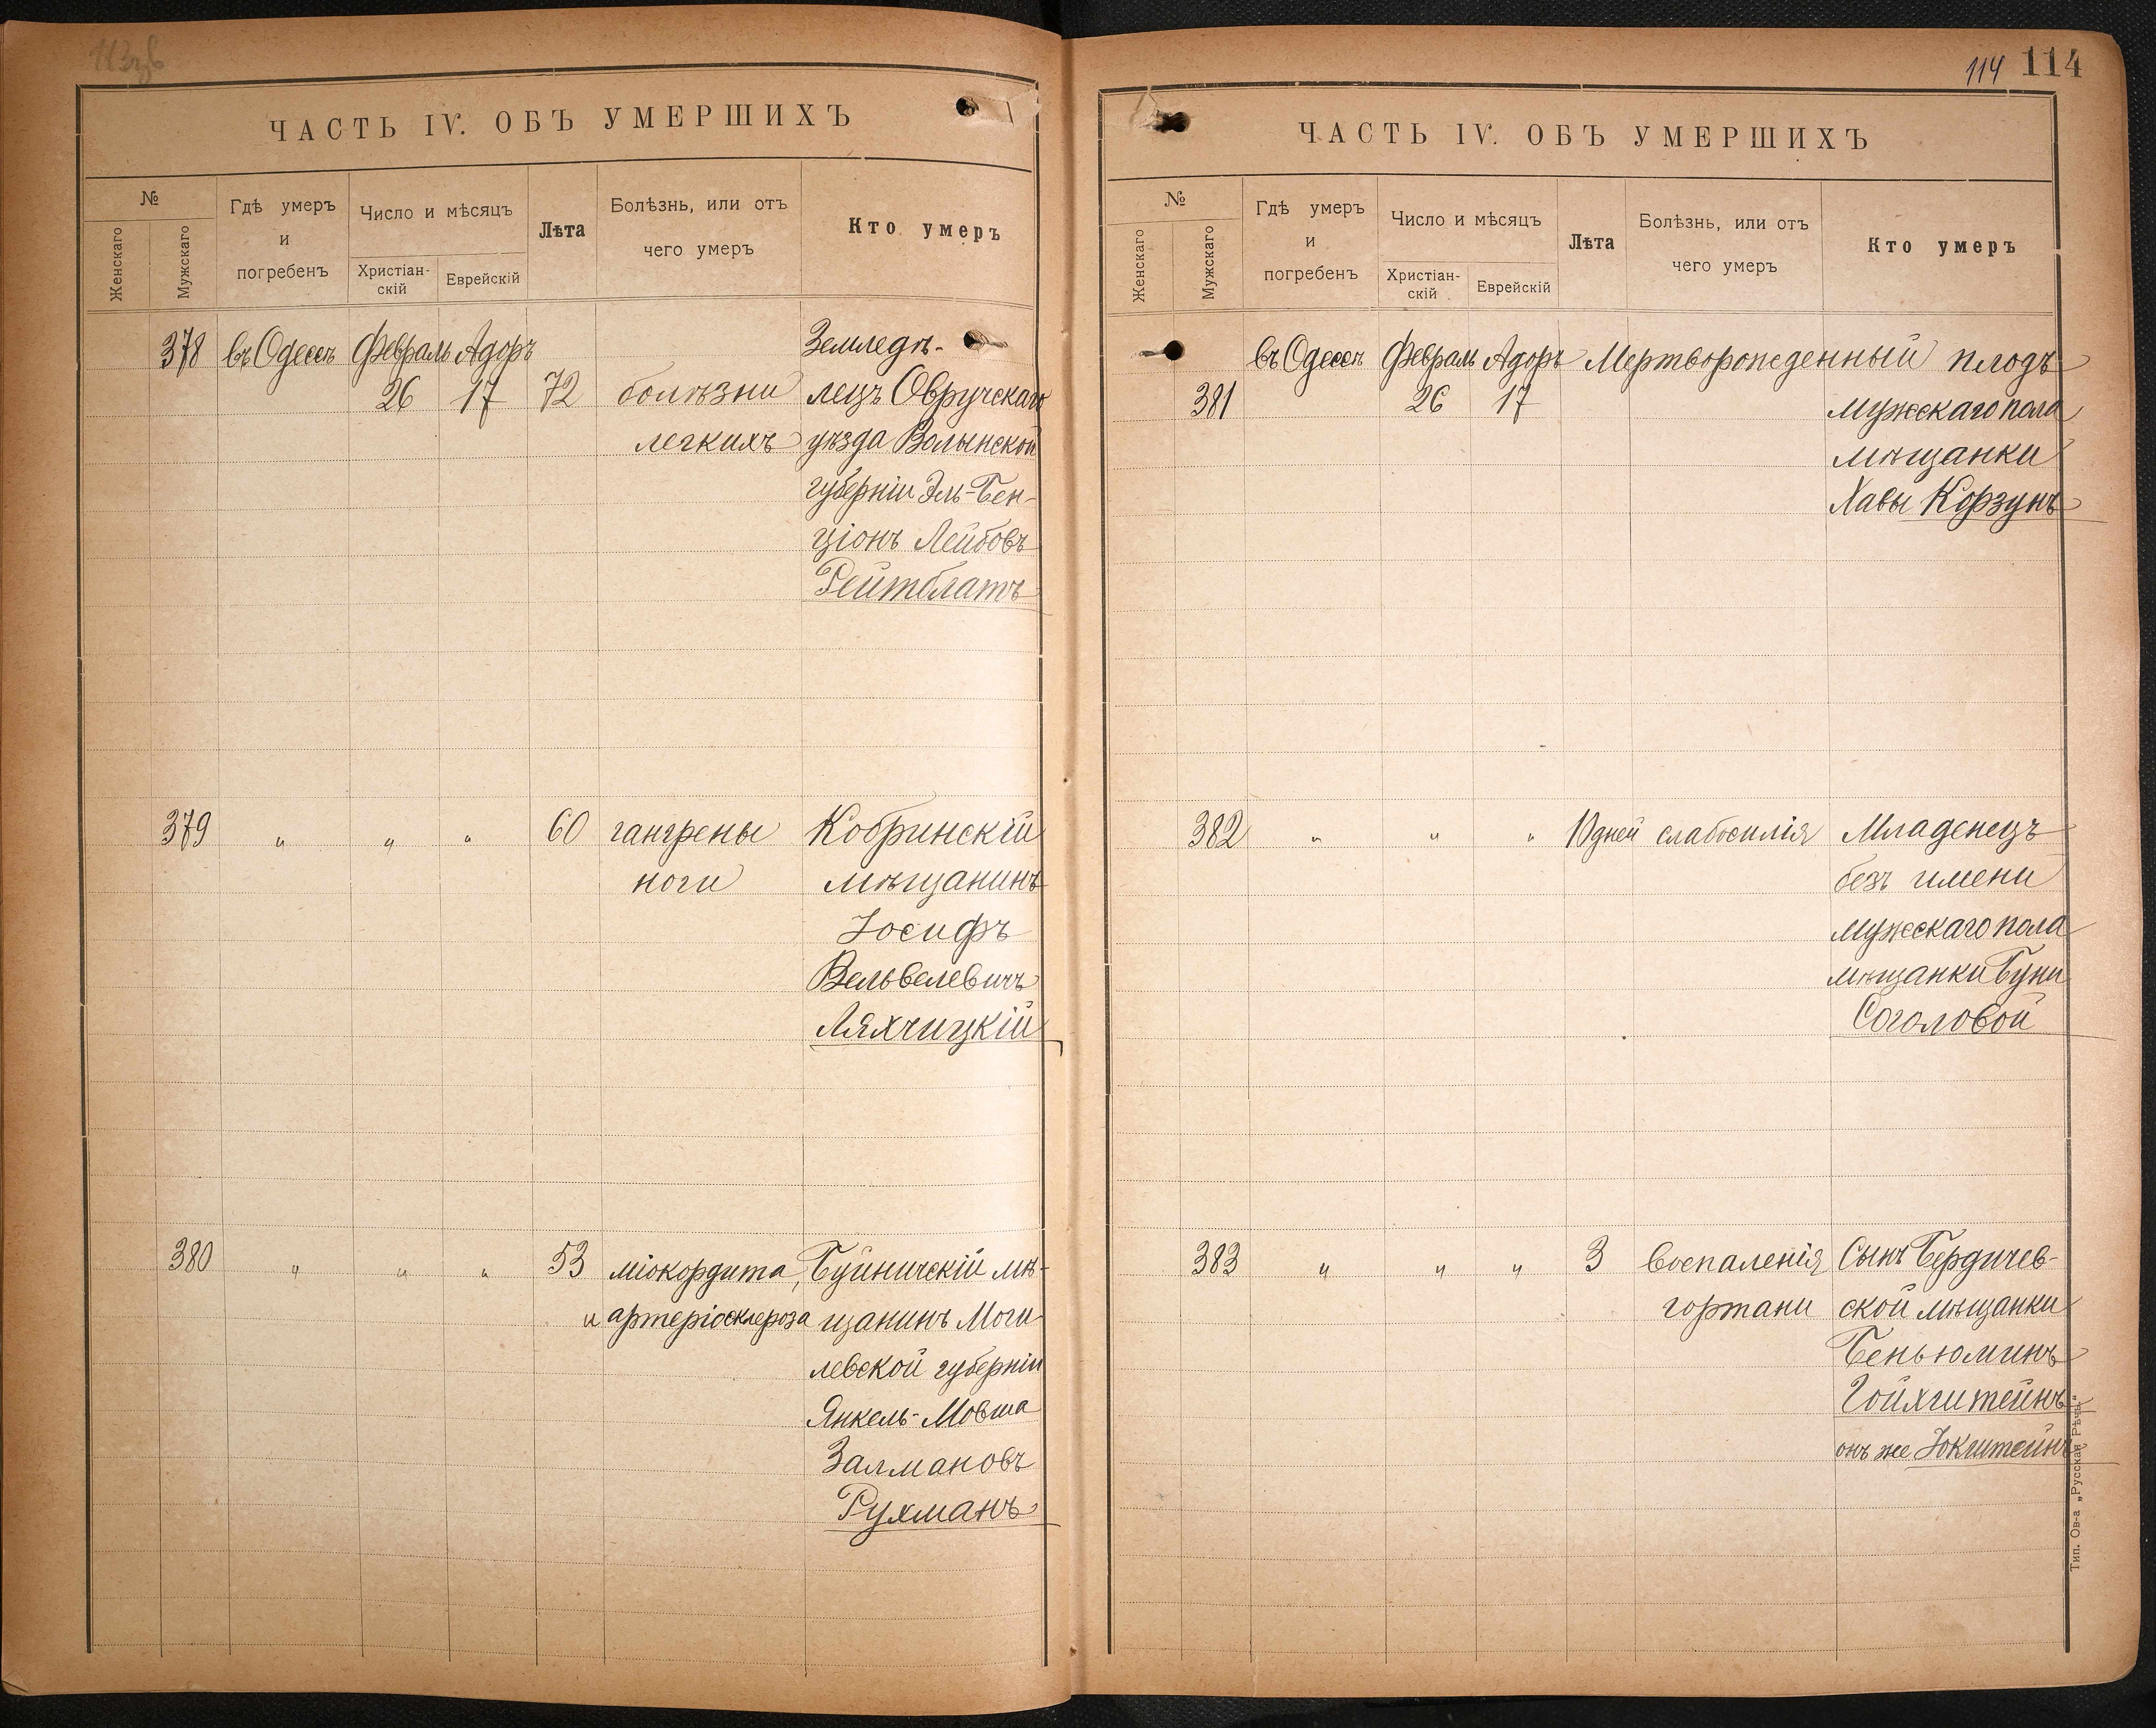 ЧАСТЬ IV. ОБЪ УМЕРШИХЪ
№
Женскаго
Мужскаго
Гдѣ умеръ
и
погребенъ
Число и мѣсяцъ
Христіан-
скій
Еврейскій
Лѣта
Болѣзнь, или отъ
чего умеръ
Кто умеръ
378 въ Одессѣ Февраль Адоръ Земледѣ-
26 17 72 болѣзни лецъ Овручскаго
легкихъ уѣзда Волынской
губерніи Эль-Бен-
ціонъ Лейбовъ
Рейтблатъ
379 " " " 60 гангрены Кобринскій
ноги мѣщанинъ
Іосифъ
Вельвелевичъ
Ляхчицкій
380 " " " 53 міокордита, Буйничскій мѣ-
и артеріосклероза щанинъ Моги
левской губерніи
Янкель-Мовша
Залмановъ
Рухманъ
114 114
ЧАСТЬ IV. ОБЪ УМЕРШИХЪ
№
Женскаго
Мужскаго
Гдѣ умеръ
и
погребенъ
Число и мѣсяцъ
Христіан-
скій
Еврейскій
Лѣта
Болѣзнь, или отъ
чего умеръ
Кто умеръ
въ Одессѣ Февраль Адоръ Мертворожденный плодъ
381 26 17 мужескаго пола
мѣщанки
Хавы Корзунъ
382 " " " 10 дней слабосилія Младенецъ
безъ имени
мужескаго пола
мѣщанки Буни
Соголовой
383 " " " 3 воспаленія Сынъ Бердичев-
гортани ской мѣщанки
Беньюминъ
Гойхштейнъ
онъ же Юкштейнъ
Тип. Ов-а „Русская Рѣчь"